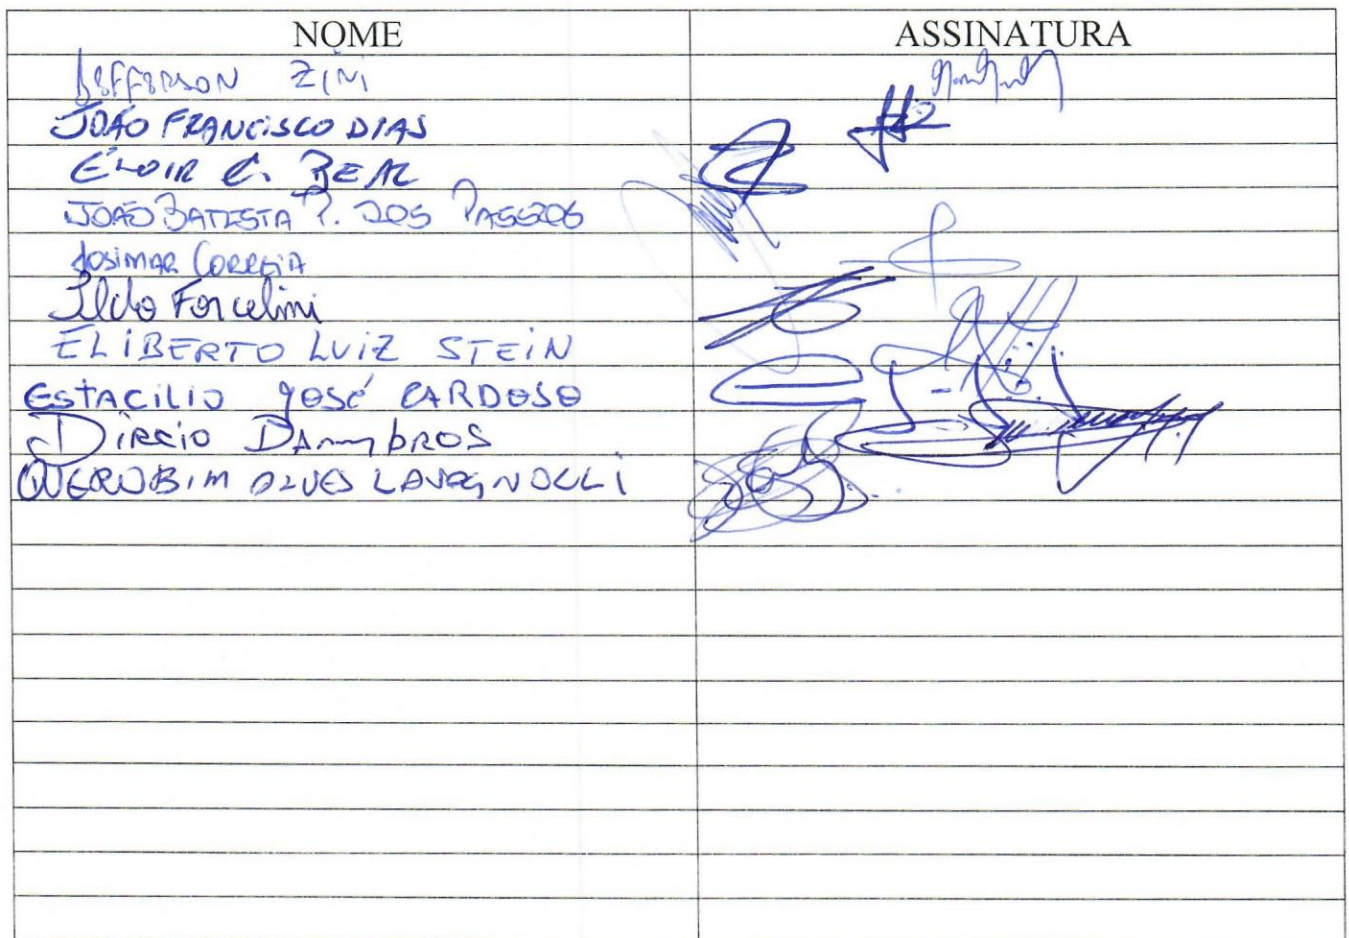 NOME ASSINATURA
JEFFERSON ZINI
JOÃO FRANCISCO DIAS
ELOIR C. BEAL
JOÃO BATISTA P. DOS PASSOS
JOSIMAR CORREIA
Ildo Forcelini
ELIBERTO LUIZ STEIN
ESTACILIO JOSÉ CARDOSO
DIRCIO DAMBROS
QUERUBIM ALVES